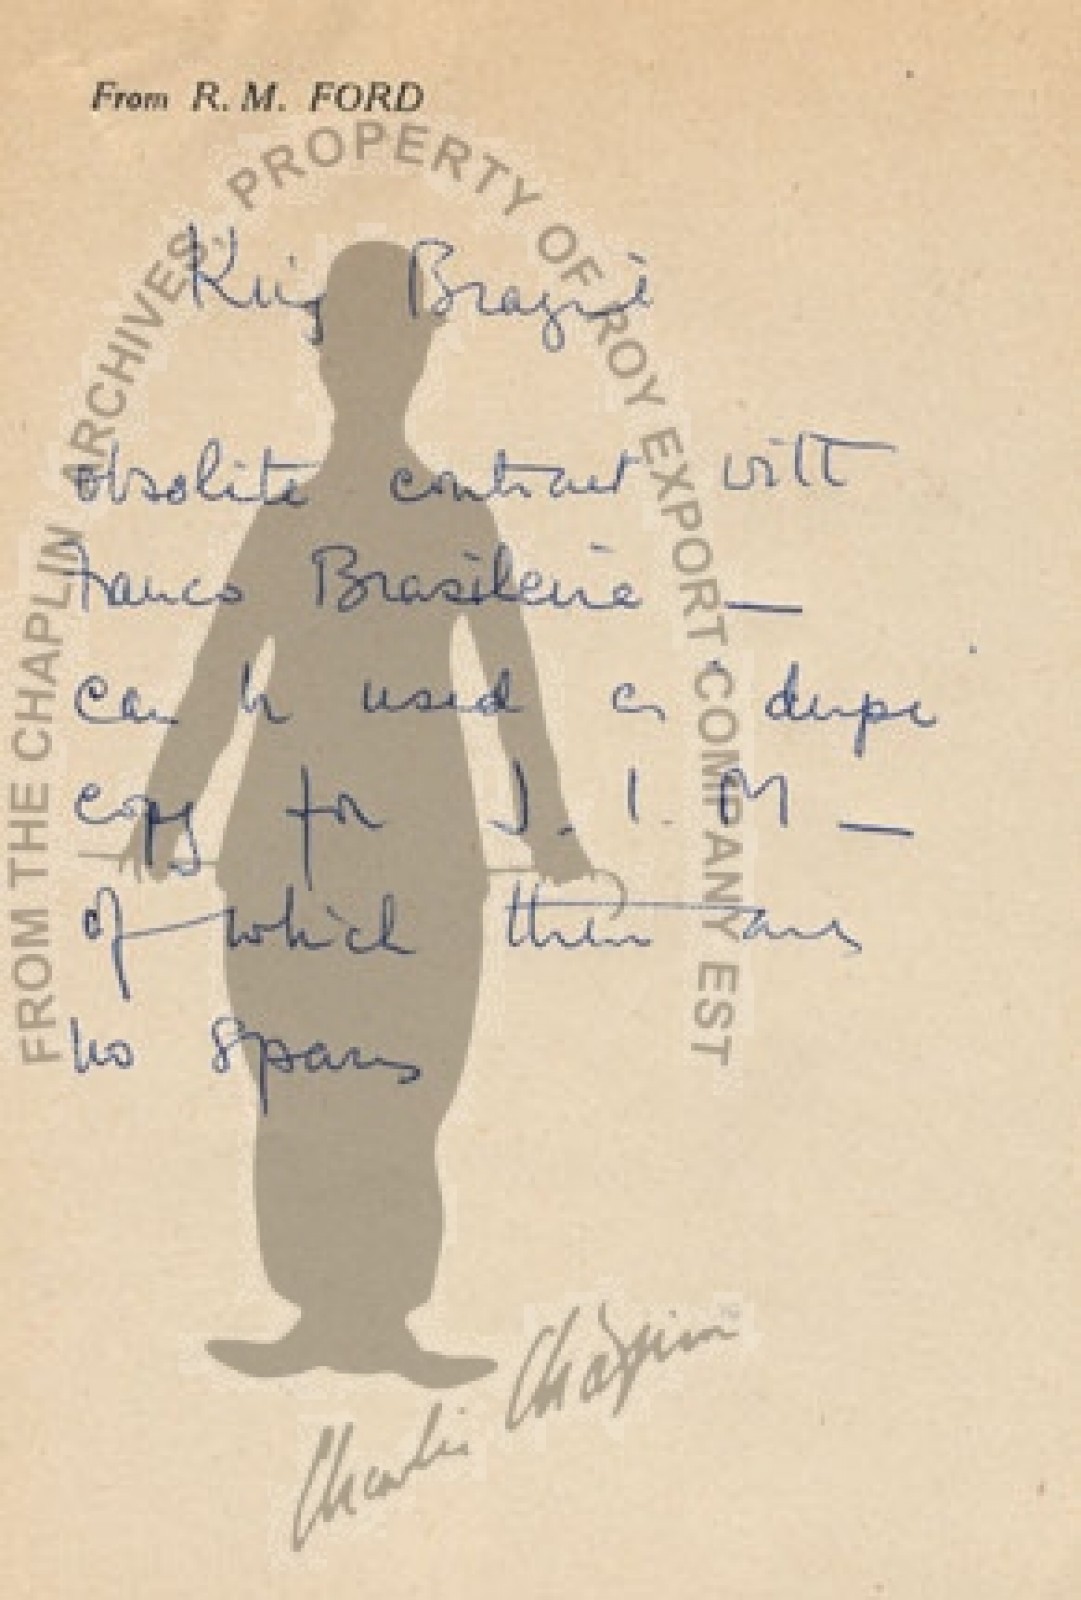 From R. M. FORD
FROM THE CHAPLIN ARCHIVES. PROPERTY OF ROY EXPORT COMPANY EST
King Brazil
obsolete contract with
Franco Brasileira —
can be used as dupe
copy for J. I. M —
of which there are
no spares
Charlie Chaplin